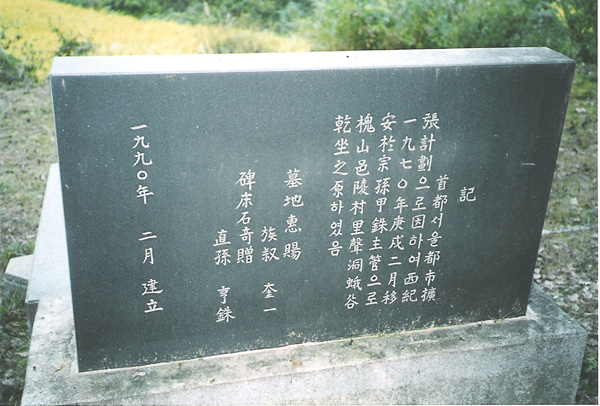 記
首都서울都市擴
張計劃으로因하여西紀
一九七○年庚戌二月移
安於宗孫甲銖主管으로
槐山邑陵村里聲洞蛾谷
乾坐之原하였음
墓地惠賜
族叔 奎一
碑床石奇贈
直孫 亨銖
一九九○年 二月 建立